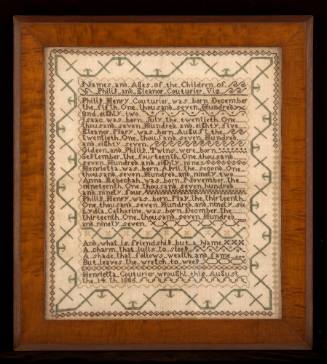 Names and Ages of the Children of
Philip and Eleanor Couturier, Viz
Philip Henry Couturier, was born December
the fifth, One thousand, seven, Hundred
and eighty two
Isaac, was born, July, the twentieth, One,
thousand, seven, Hundred, and eighty five
Eleanor Mary, was born, August, the
twentieth, One, thousand, seven, Hundred,
and eighty seven.
and Philip, Twins, were born
September, the fourteenth, One, thousand,
seven, Hundred, and eighty nine
Henrietta, was born, April, the second, One,
thousand, seven, Hundred, and, ninety two
Anna Rebeckah, was born, November, the
nineteenth, One, thousand, seven, hundred
and ninety four
Philip Henry, was born, May, the thirteenth,
One, thousand, seven, Hundred, and, ninety, six
Lydia Catharine, was born, December, the
thirteenth, One, thousand, seven, Hundred
and, ninety seven.
And, what is friendship, but a Name
A charm that lulls to sleep
A shade that follows wealth and fame
But leaves the wretch to weep
Henrietta Couturier, wrought this, August
the 14 th